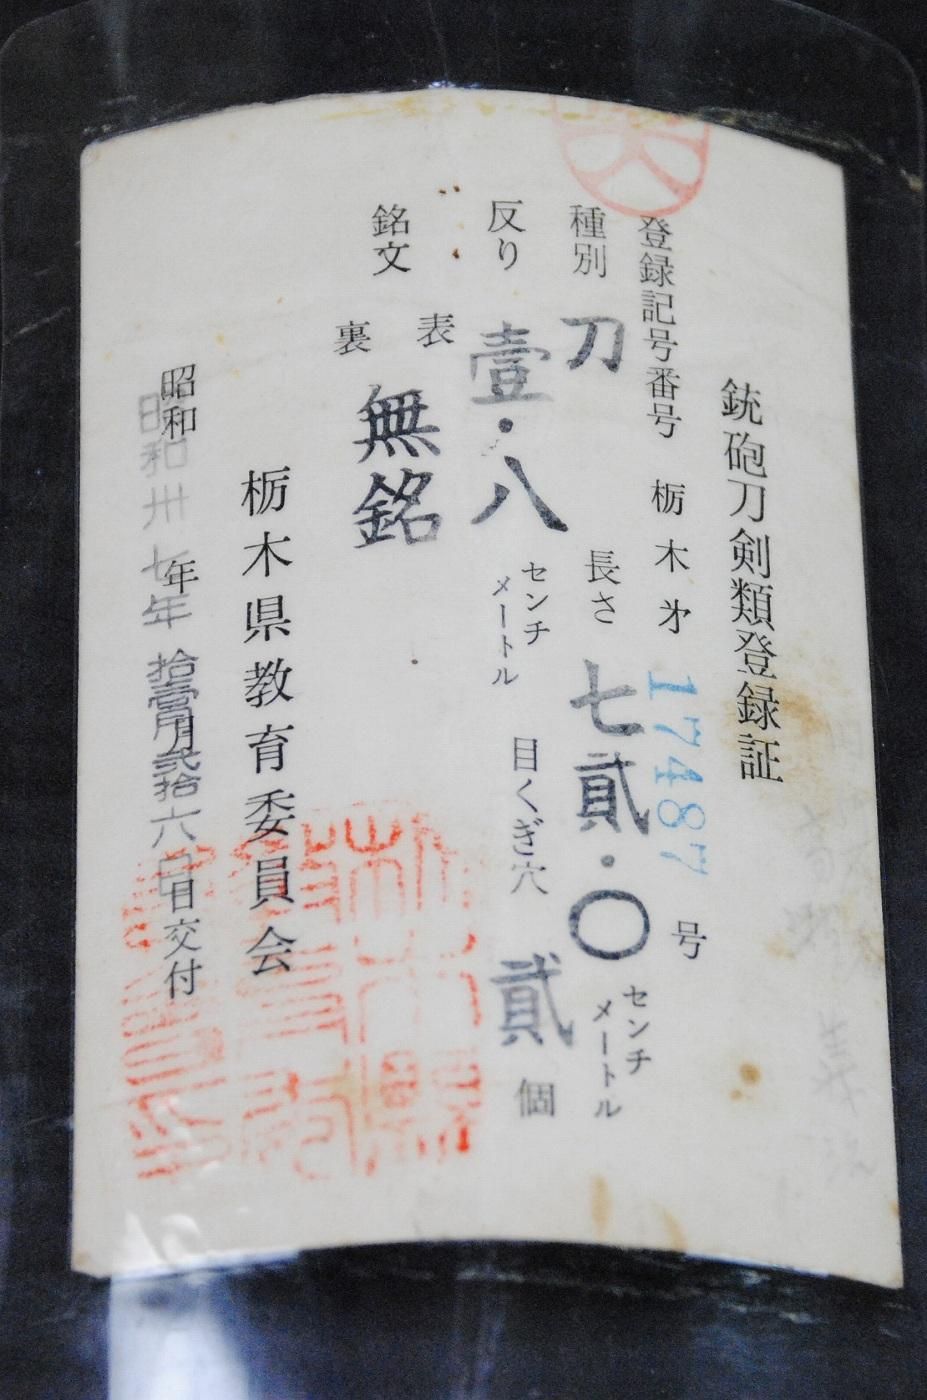 銃砲刀剣類登録証
登録記号番号 栃木才17487号
種別 刀 長さ 七貳・〇 センチメートル
反り 壹・八 センチメートル 目くぎ穴 貳 個
銘文 表 無銘
裏
栃木県教育委員会
昭和 昭和卅七年年 拾壹月月貳拾六日日交付